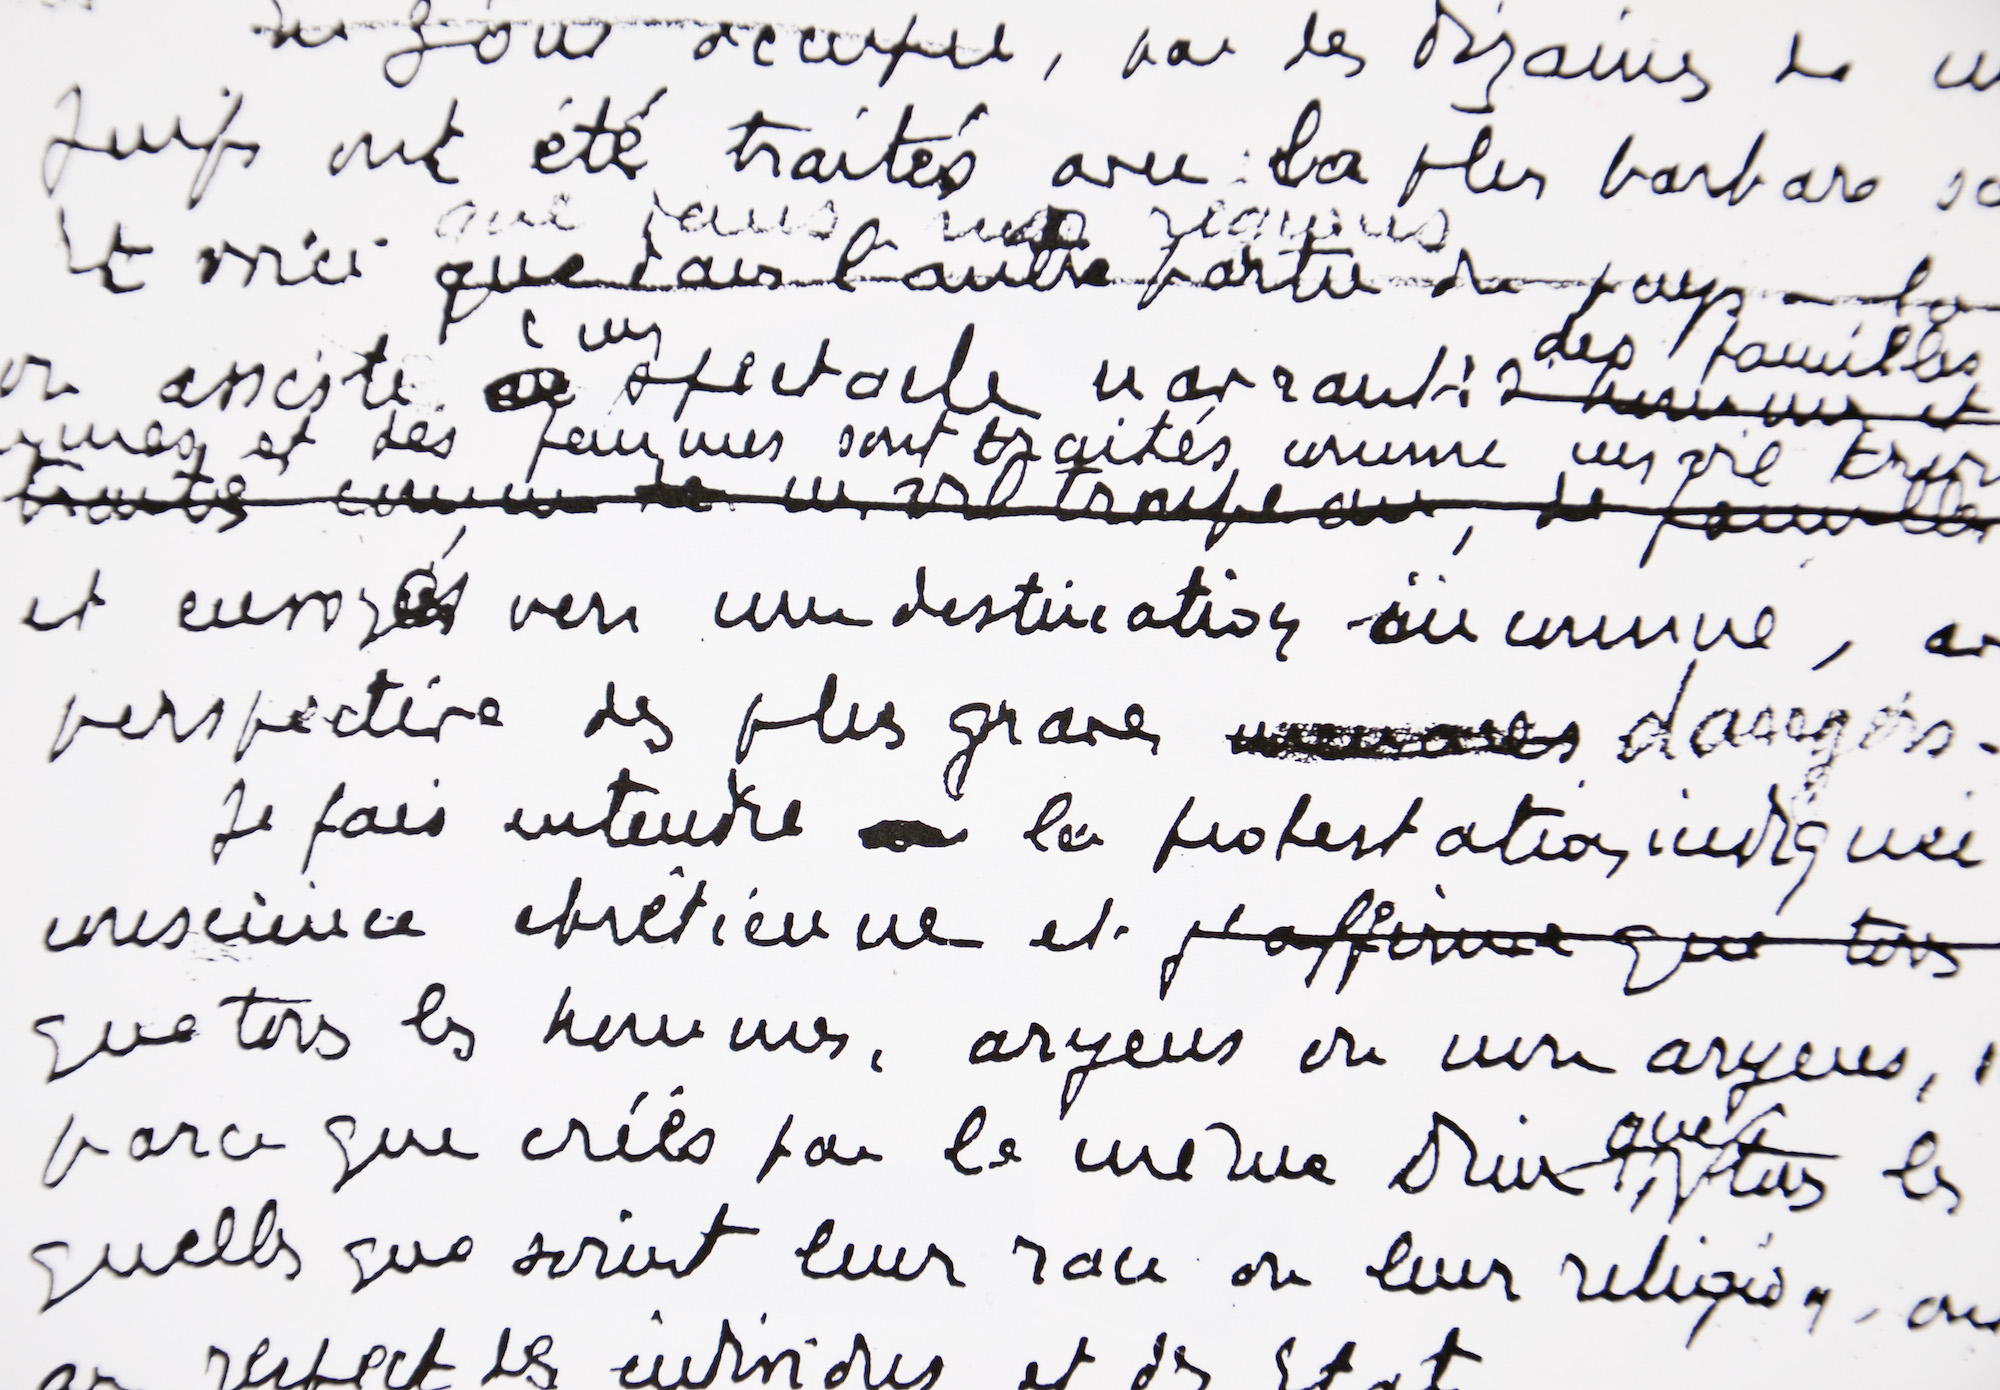 de zône occupée, par des dizaines de
Juifs ont été traités avec la plus barbare
Et voici que dans nos régions
que dans l'autre partie du pays - la
on assiste à un spectacle navrant : des familles
hommes et
et des femmes sont traités comme un vil
traités comme un vil troupeau, de familles
et envoyés vers une destination inconnue,
perspective des plus graves dangers.
Je fais entendre la protestation indignée
conscience chrétienne et j'affirme que tous
que tous les hommes, aryens ou non aryens,
parce que créés par le même Dieu que tous les
quelles que soient leur race ou leur religion,
au respect des individus et des Etat